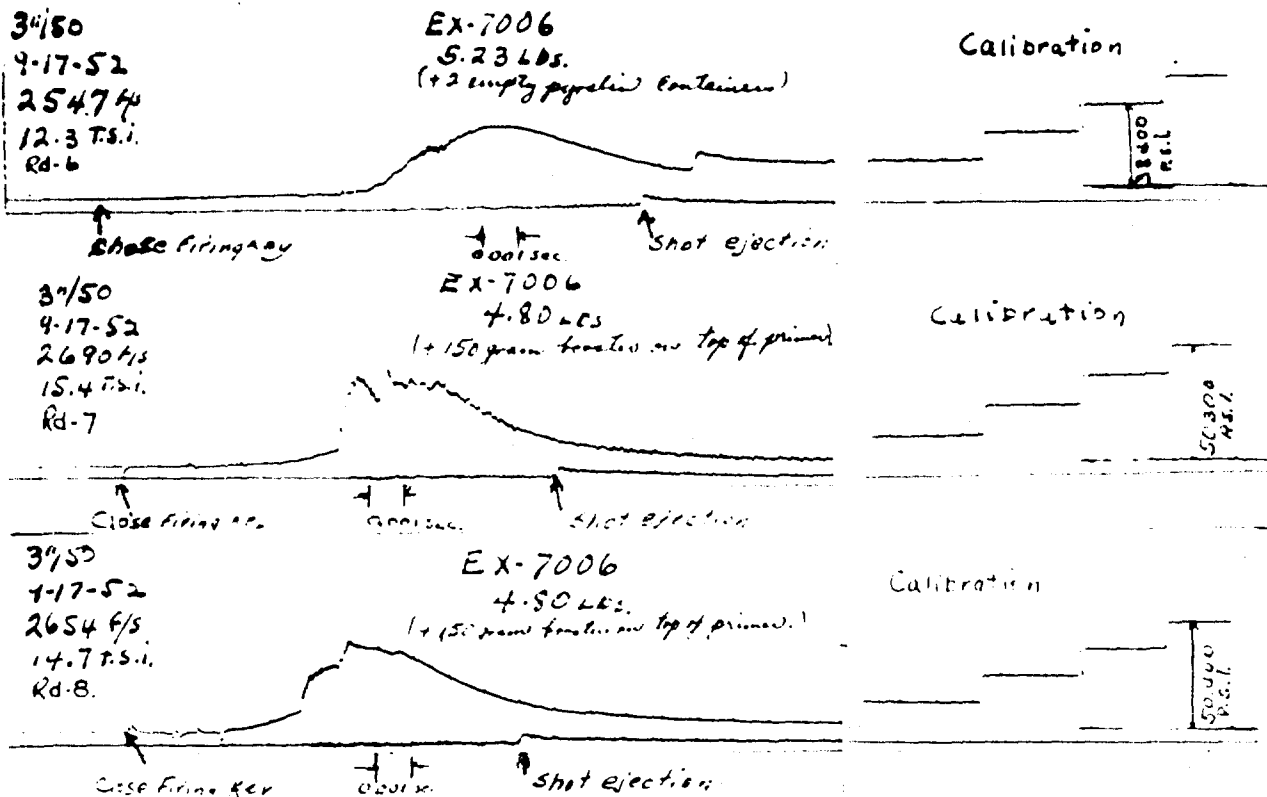 3"/50
9-17-52
2547 f/s
12.3 T.S.i.
Rd-6
EX-7006
5.23 Lbs.
(+2 empty pyralin Containers)
Calibration
38600
P.S.I.
Close Firing Key
0.001 sec.
Shot ejection
3"/50
9-17-52
2690 f/s
15.4 T.S.i.
Rd-7
EX-7006
4.80 LBS
(+150 gram booster on top of primer)
Calibration
50300
P.S.I.
Close Firing
0.001 sec.
Shot ejection
3"/50
9-17-52
2654 F/s
14.7 T.S.i.
Rd-8.
EX-7006
4.80 LBS.
(+150 gram booster on top of primer.)
Calibration
P.S.I.
Close Firing Key
Shot ejection